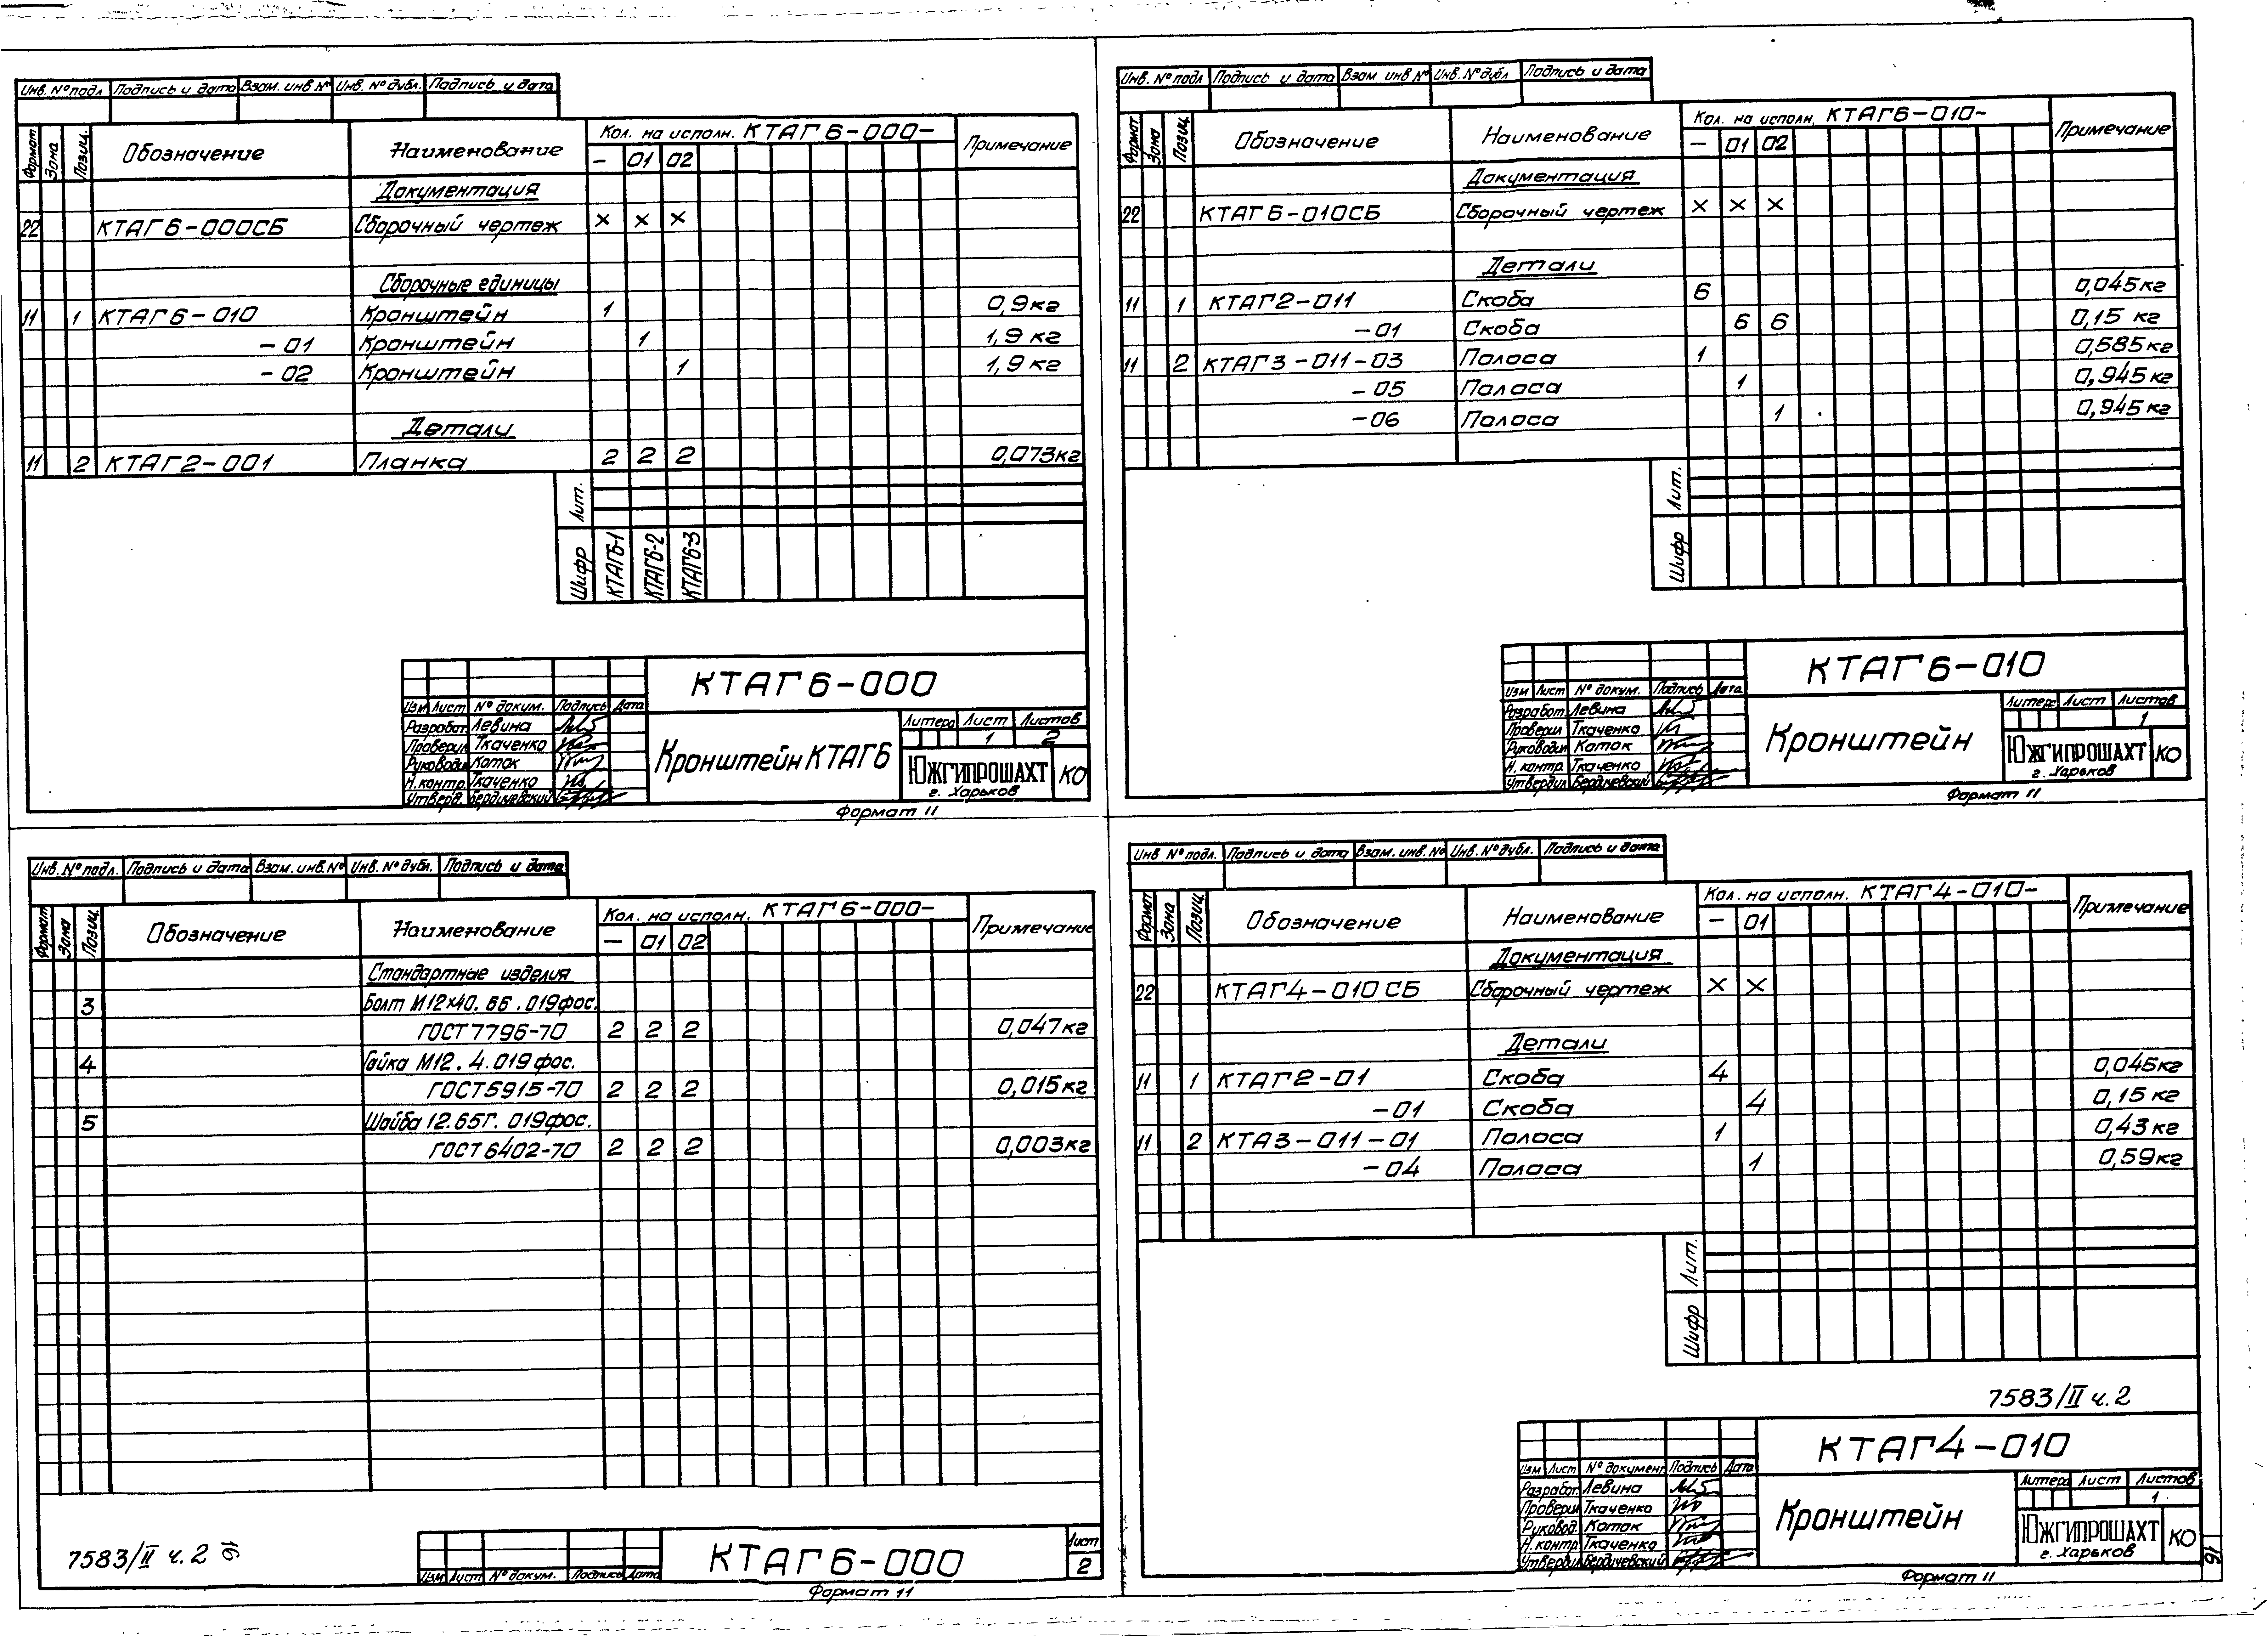 Инв. № подл Подпись и дата Взам. инв № Инв. № дубл. Подпись и дата
Формат Зона Позиц. Обозначение Наименование Кол. на исполн. КТАГ6-000- Примечание
- 01 02
Документация
22 КТАГ6-000СБ Сборочный чертеж × × ×
Сборочные единицы
11 1 КТАГ6-010 Кронштейн 1 0,9кг
-01 Кронштейн 1 1,9 кг
-02 Кронштейн 1 1,9 кг
Детали
11 2 КТАГ2-001 Планка 2 2 2 0,073кг
Лит.
Шифр КТАГ6-1 КТАГ6-2 КТАГ6-3
КТАГ6-000
Изм Лист № докум. Подпись Дата
Разработ. Левина
Проверил Ткаченко
Руководил Каток
Н. контр. Ткаченко
Утверд. Бердичевский
Кронштейн КТАГ6
Литера Лист Листов
1 2
ЮЖГИПРОШАХТ
г. Харьков
КО
Формат 11
Инв. № подл Подпись и дата Взам инв № Инв. № дубл Подпись и дата
Формат Зона Позиц. Обозначение Наименование Кол. на исполн. КТАГ6-010- Примечание
- 01 02
Документация
22 КТАГ6-010СБ Сборочный чертеж × × ×
Детали
11 1 КТАГ2-011 Скоба 6 0,045кг
-01 Скоба 6 6 0,15 кг
11 2 КТАГ3-011-03 Полоса 1 0,585кг
-05 Полоса 1 0,945кг
-06 Полоса 1 0,945 кг
Лит.
Шифр
КТАГ6-010
Изм Лист № докум. Подпись Дата
Разработ. Левина
Проверил Ткаченко
Руководил Каток
Н. контр. Ткаченко
Утвердил Бердичевский
Кронштейн
Литера Лист Листов
1
ЮЖГИПРОШАХТ
г. Харьков
КО
Формат 11
Инв. № подл. Подпись и дата Взам. инв. № Инв. № дубл. Подпись и дата
Формат Зона Позиц. Обозначение Наименование Кол. на исполн. КТАГ6-000- Примечание
- 01 02
Стандартные изделия
3 Болт М12×40. 66. 019фос.
ГОСТ 7796-70 2 2 2 0,047кг
4 Гайка М12. 4. 019 фос.
ГОСТ 5915-70 2 2 2 0,015кг
5 Шайба 12. 65Г. 019фос.
ГОСТ 6402-70 2 2 2 0,003кг
7583/II ч. 2 16
Изм Лист № докум. Подпись Дата
КТАГ6-000
Лист
2
Формат 11
Инв № подл. Подпись и дата Взам. инв. № Инв. № дубл. Подпись и дата
Формат Зона Позиц Обозначение Наименование Кол. на исполн. КТАГ4-010- Примечание
- 01
Документация
22 КТАГ4-010 СБ Сборочный чертеж × ×
Детали
11 1 КТАГ2-01 Скоба 4 0,045кг
-01 Скоба 4 0,15 кг
11 2 КТА3-011-01 Полоса 1 0,43кг
-04 Полоса 1 0,59кг
Лит.
Шифр
7583/II ч. 2
КТАГ4-010
Изм Лист № документ Подпись Дата
Разработ. Левина
Проверил Ткаченко
Руковод. Каток
Н. контр. Ткаченко
Утвердил Бердичевский
Кронштейн
Литера Лист Листов
1
ЮЖГИПРОШАХТ
г. Харьков
КО
Формат 11
16